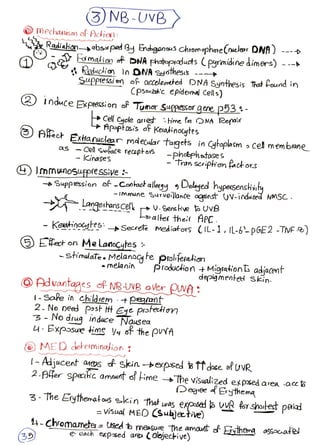 ③ NB-UVB
Mechanism of Action:
① Radiation → absorped By Endogenous chromophore (nuclear DNA) ---→
Formation of DNA photoproducts (pyrimidine dimers) ---→
Reduction in DNA synthesis ------→
Suppression of accelerated DNA Synthesis That found in
(psoriatic epidermal Cells)
② induce Expression of Tumor Suppressor gene p53 :-
→ Cell Cycle arrest : time for DNA Repair
→ Apoptosis of Keratinocytes
③ Affect Extranuclear molecular targets in Cytoplasm, Cell membrane
as - Cell Surface receptors - phosphatases
- Kinases - Transcription factors
④ Immunosuppressive :-
→ Suppression of - Contact allergy, Delayed hypersensitivity
- Immune Surveillance against UV-induced NMSC.
→ Langerhans cell → V. Sensitive to UVB
→ alter their APC.
- Keratinocytes: → Secrete mediators (IL-1, IL-6, PGE2 - TNF α)
⑤ Effect on Melanocytes :-
- stimulate • Melanocyte proliferation
• melanin production + Migration To adjacent
depigmented Skin.
Advantages of NB-UVB over PUVA :
1 - Safe in children + pregnant
2 - No need post ttt Eye protection
3 - No drug induce Nausea
4 - Exposure time 1/4 of the PUVA
MED determination :
1 - Adjacent areas of Skin → exposed to ↑↑ dose of UVR
2 - After specific amount of time → The visualized exposed area -acc to
Degree of Erythema
3 - The Erythematous skin That was exposed to UVR for shortest period
= visual MED (Subjective)
4 - Chromameter = Used to measure The amount of Erythema associated
e each exposed area (objective)
39